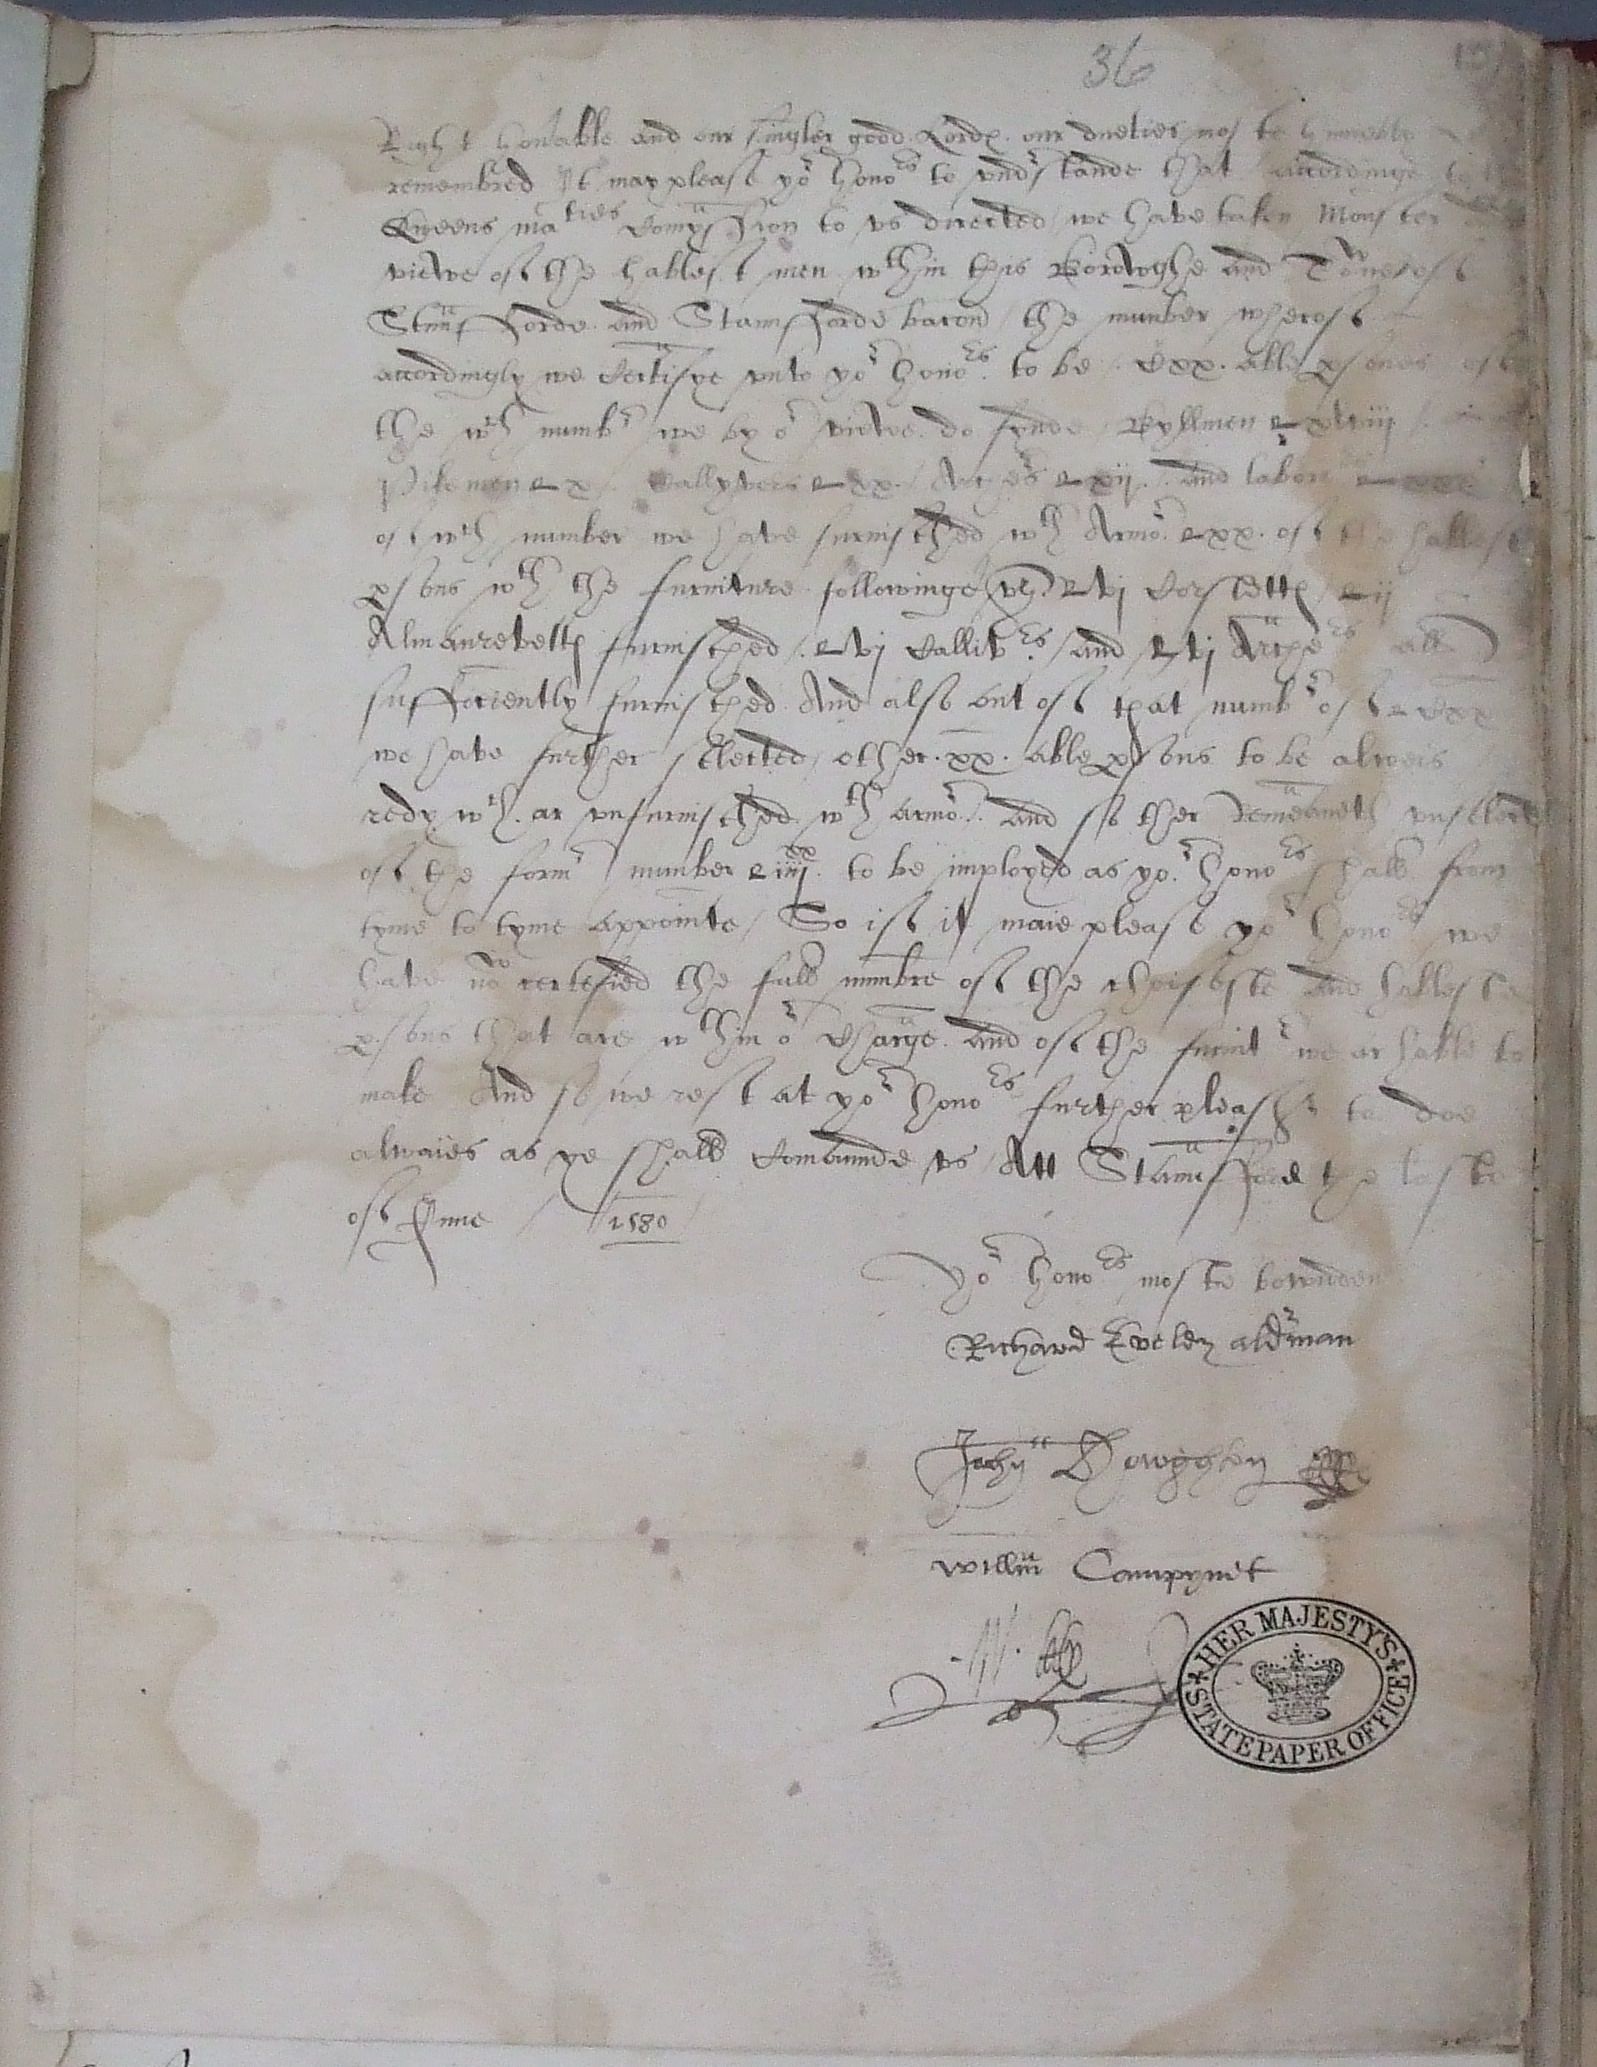 36
Right honable and our singler good Lordp. our dueties moste humbly
remembred It may please yor honors to undrstande that accordinge to
Queens maties Comyssion to us directed / we have taken Monster
viewe off the hablest men wthin this Borowghe and Towne off
Stamfforde and Stamfforde baron / the number wheroff
accordingly we Certifye unto yor honors to be . Cxx . able psones off
the wch numbr we by or viewe do fynde Byllmen xlviij
Pikemen x / Callyvers xx / Archers xij . and labor
off wch number we have furnished wth Armor xx . off the hablest
psons wth the furniture followinge vz. vj Corslettp / ij
Almanrevettp furnished / vj Callivrs / and vj Archers all
suffitiently furnished And also out off that numbr off Cxx
we have further selected / other . xx . able psons to be alweis
redy wch ar unfurnished wth armor . And so ther Remeaneth unselect
off the formr number iiijxx to be imployed as yor honors shall from
tyme to tyme appointe / So iff it maie please yor honors we
have now certefied the full numbre off the choiseste and hableste
psons that are wthin or Charge And off the furnitr we ar hable to
make And so we rest at yor honors further pleasr to doe
alwaies as ye shall Comaunde us / Att Stamfford the laste
off June / 1580 /
Yor honors moste bownden
Richard Eveley aldrman
John Howghton
Willm Campynet
HER MAJESTY'S STATE PAPER OFFICE